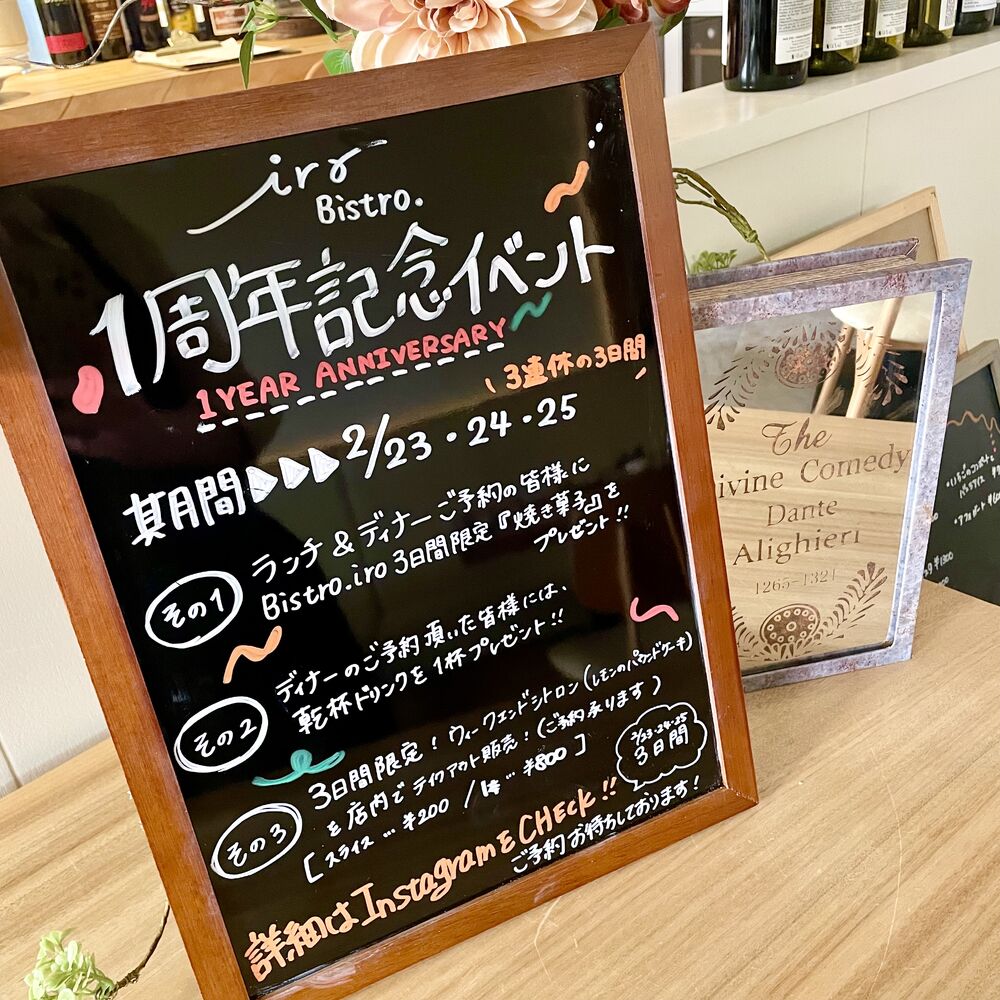 iro
Bistro.
1周年記念イベント
1YEAR ANNIVERSARY
3連休の3日間
期間▷▷▷▷2/23・24・25
その1
ランチ&ディナーご予約の皆様に
Bistro.iro 3日間限定『焼き菓子』を
プレゼント!!
その2
ディナーのご予約頂いた皆様には、
乾杯ドリンクを1杯プレゼント!!
その3
3日間限定!ウィークエンドシトロン(レモンのパウンドケーキ)
を店内でテイクアウト販売!(ご予約承ります)
[スライス…¥200 / 1本…¥800]
2/23・24・25
3日間
詳細はInstagramをCHECK!!
ご予約お待ちしております!
The
ivine Comedy
Dante
Alighieri
1265-1321